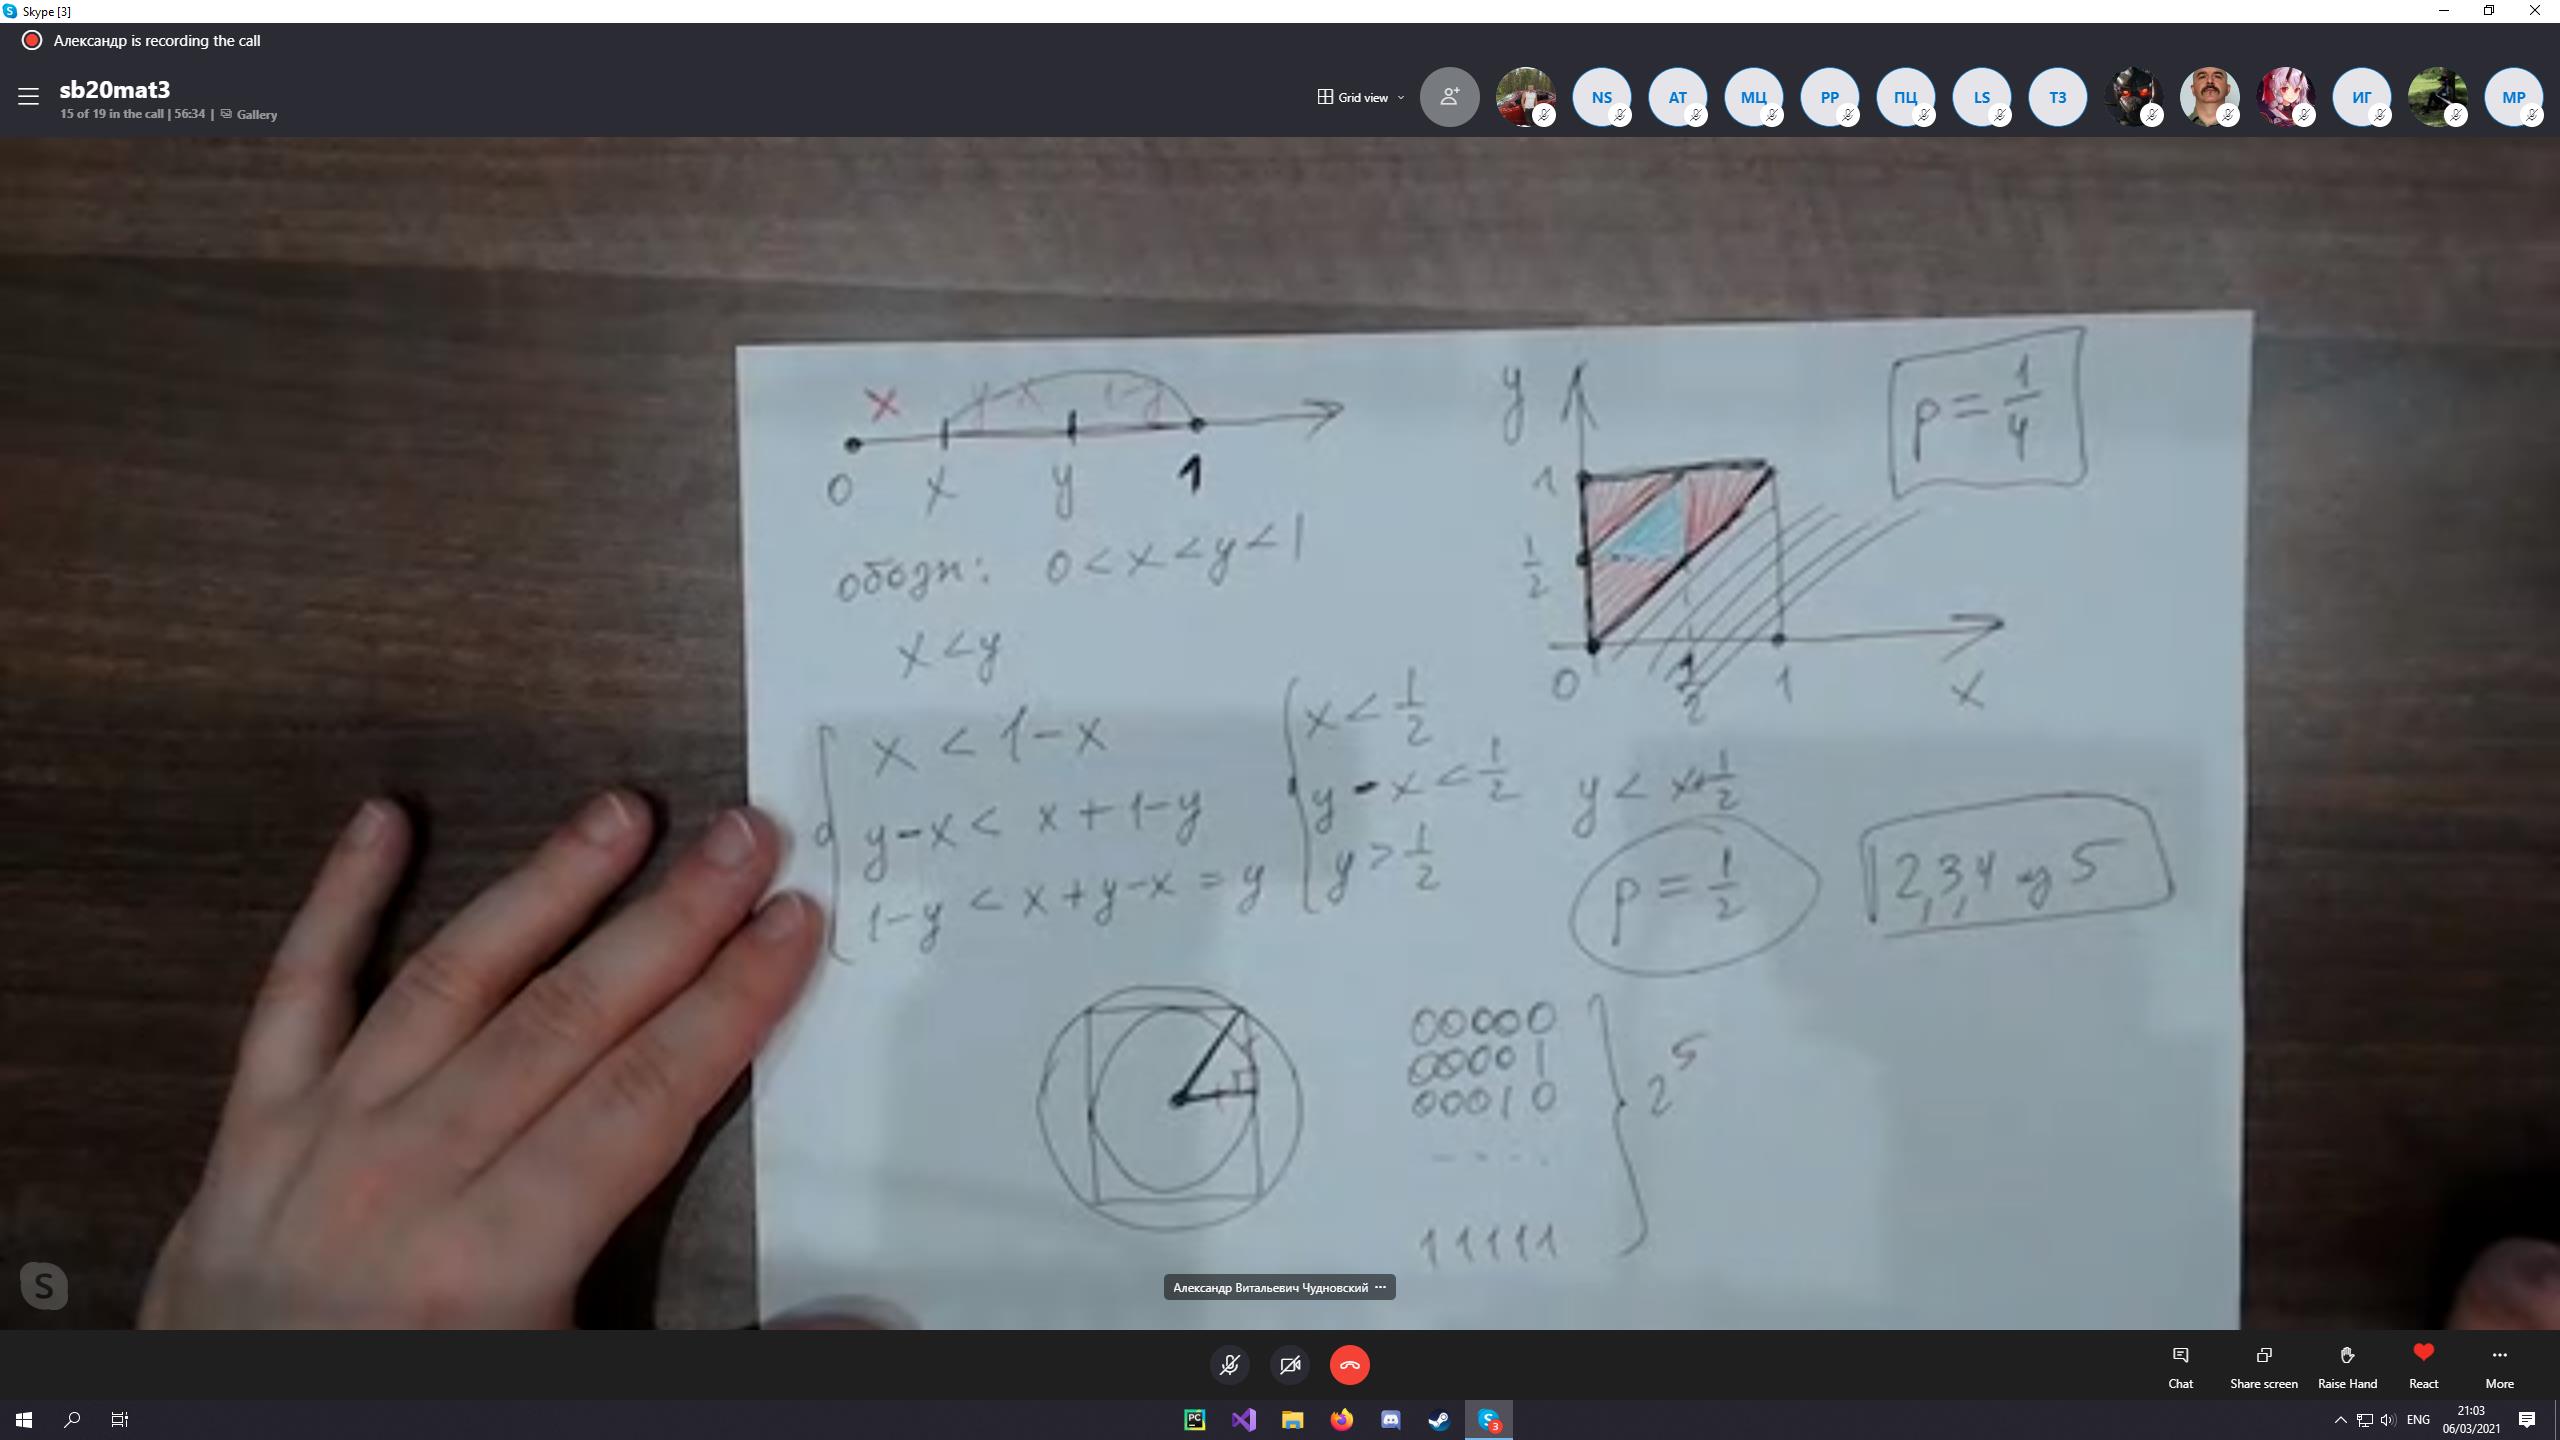 Skype [3]
Александр is recording the call
sb20mat3
15 of 19 in the call | 56:34 | Gallery
Grid view
NS
AT
МЦ
PP
ПЦ
LS
ТЗ
ИГ
MP
x y-x 1-y
0 x y 1
обозн: 0 < x < y < 1
x < y
x < 1-x
y-x < x+1-y
1-y < x+y-x = y
x < 1/2
y-x < 1/2 y < x+1/2
y > 1/2
y
1
1/2
0 1/2 1 x
p = 1/4
p = 1/2
2,3,4 из 5
00000
00001
00010
....
11111
2^5
Александр Витальевич Чудновский ...
S
Chat
Share screen
Raise Hand
React
More
PC
S 3
ENG
21:03
06/03/2021